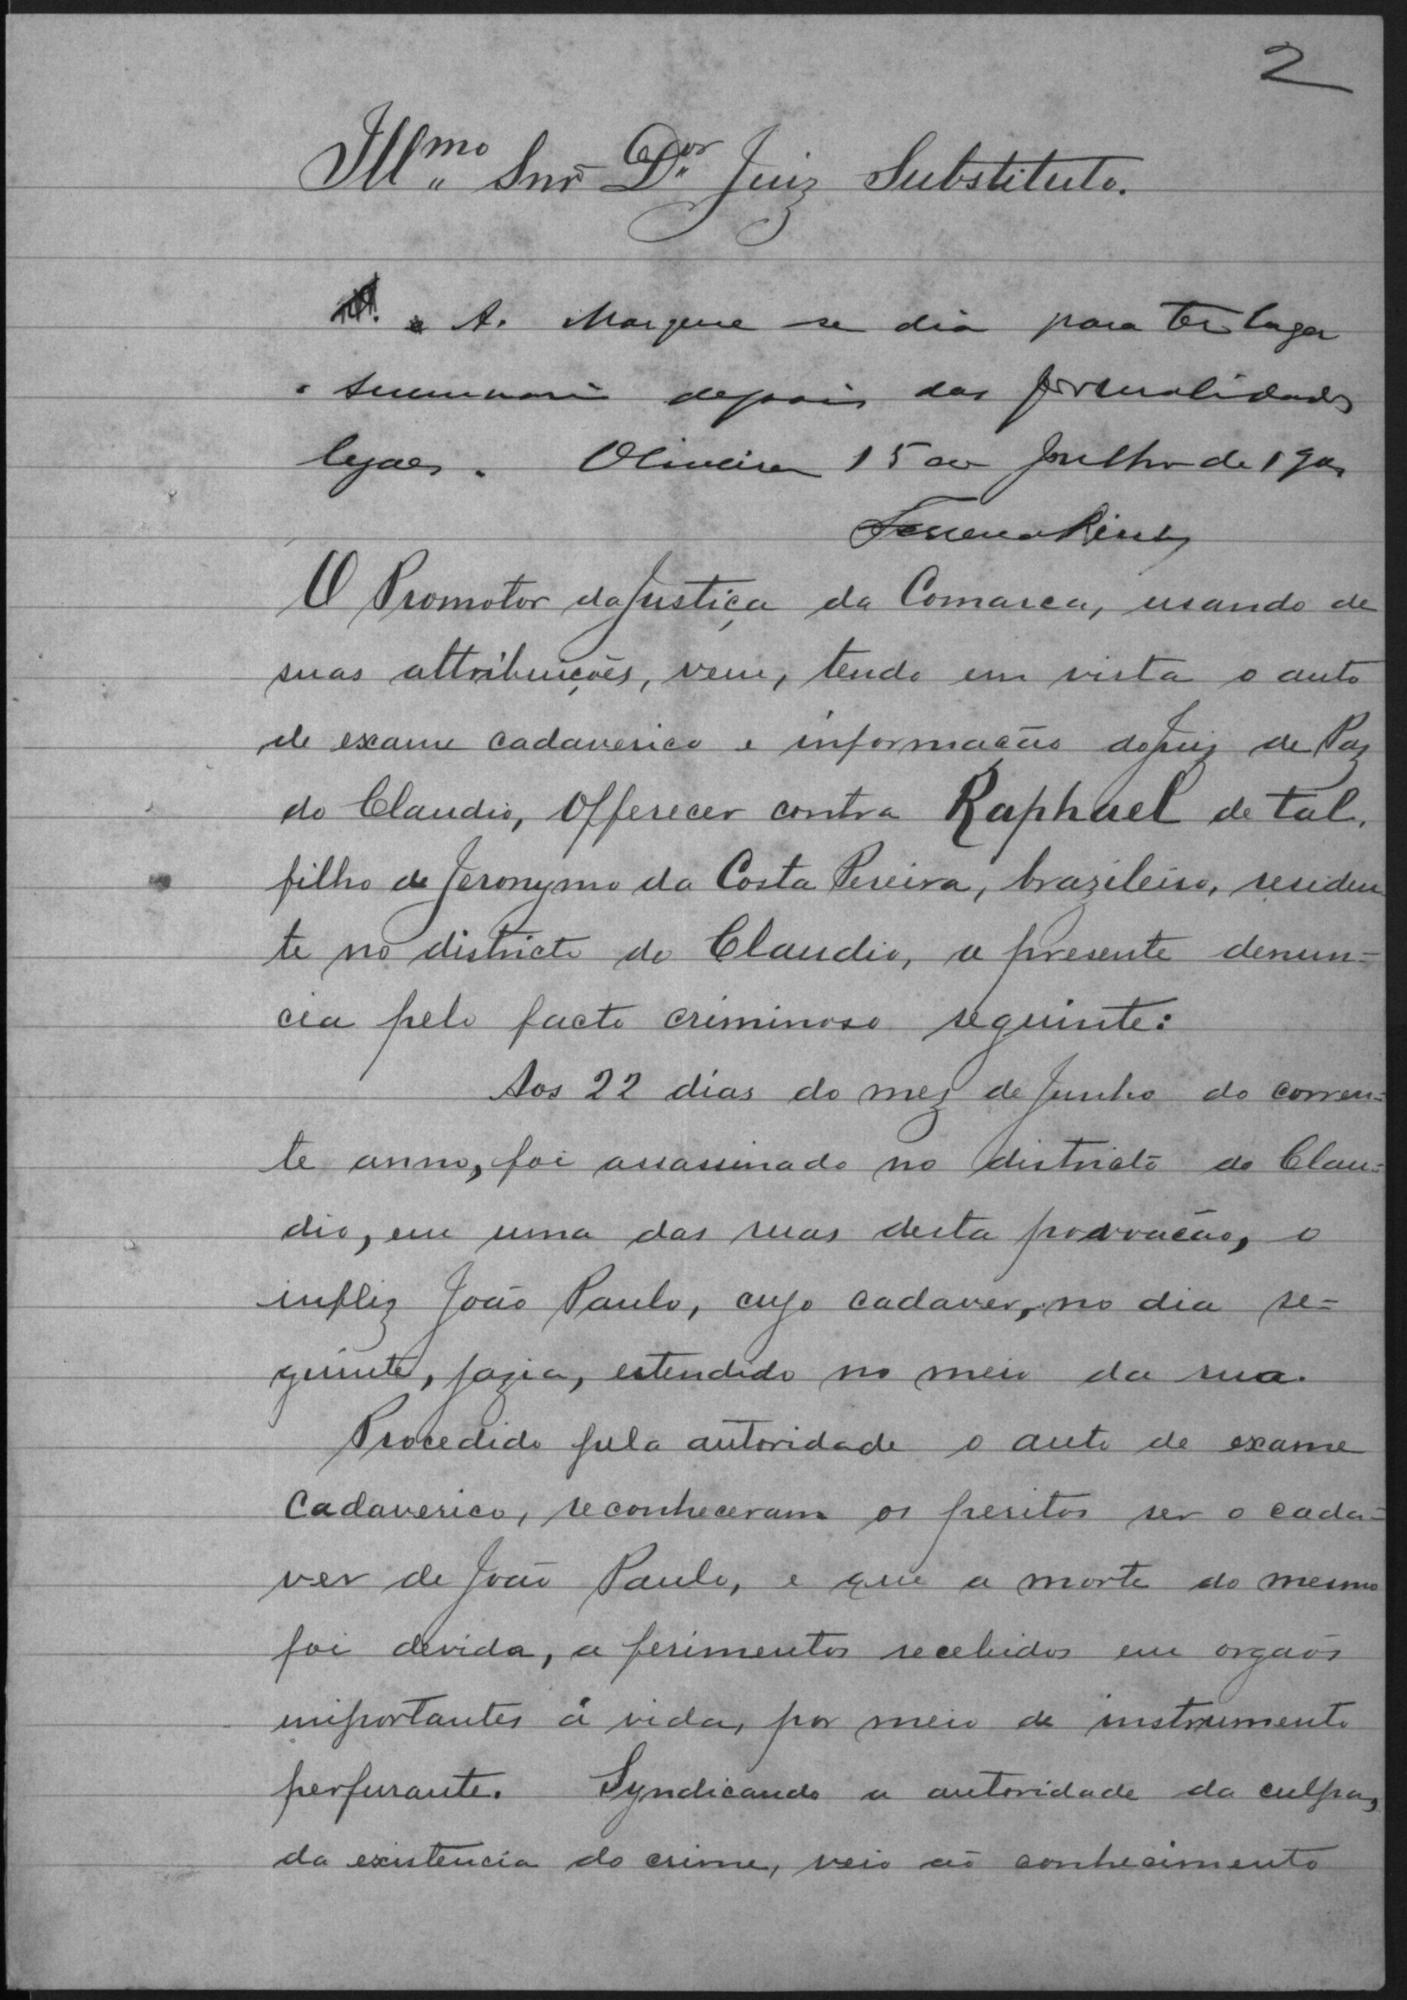 2
Ill.mo Snr. D.or Juiz Substituto.
A. Marque se dia para ter lugar
o summario depois das formalidades
legaes. Oliveira 15 de Julho de
O Promotor da Justiça da Comarca, usando de
suas attribuições, vem, tendo em vista o auto
de exame cadaverico e informação do Juiz de Paz
do Claudio, Offerecer contra Raphael de tal,
filho de Jeronymo da Costa Pereira, brazileiro, residen
te no districto do Claudio, a presente denun=
cia pelo facto criminoso seguinte:
Aos 22 dias do mez de Junho do corren=
te anno, foi assassinado no districto do Clau=
dio, em uma das ruas desta povoação, o
infliz João Paulo, cujo cadaver, no dia se=
guinte, jazia, estendido no meio da rua.
Procedido pela autoridade o auto de exame
cadaverico, reconheceram os peritos ser o cada=
ver de João Paulo, e que a morte do mesmo
foi devida, a ferimentos recebidos em orgãos
importantes á vida, por meio de instrumento
perfurante. Syndicando a autoridade da culpa,
da existencia do crime, veio ao conhecimento